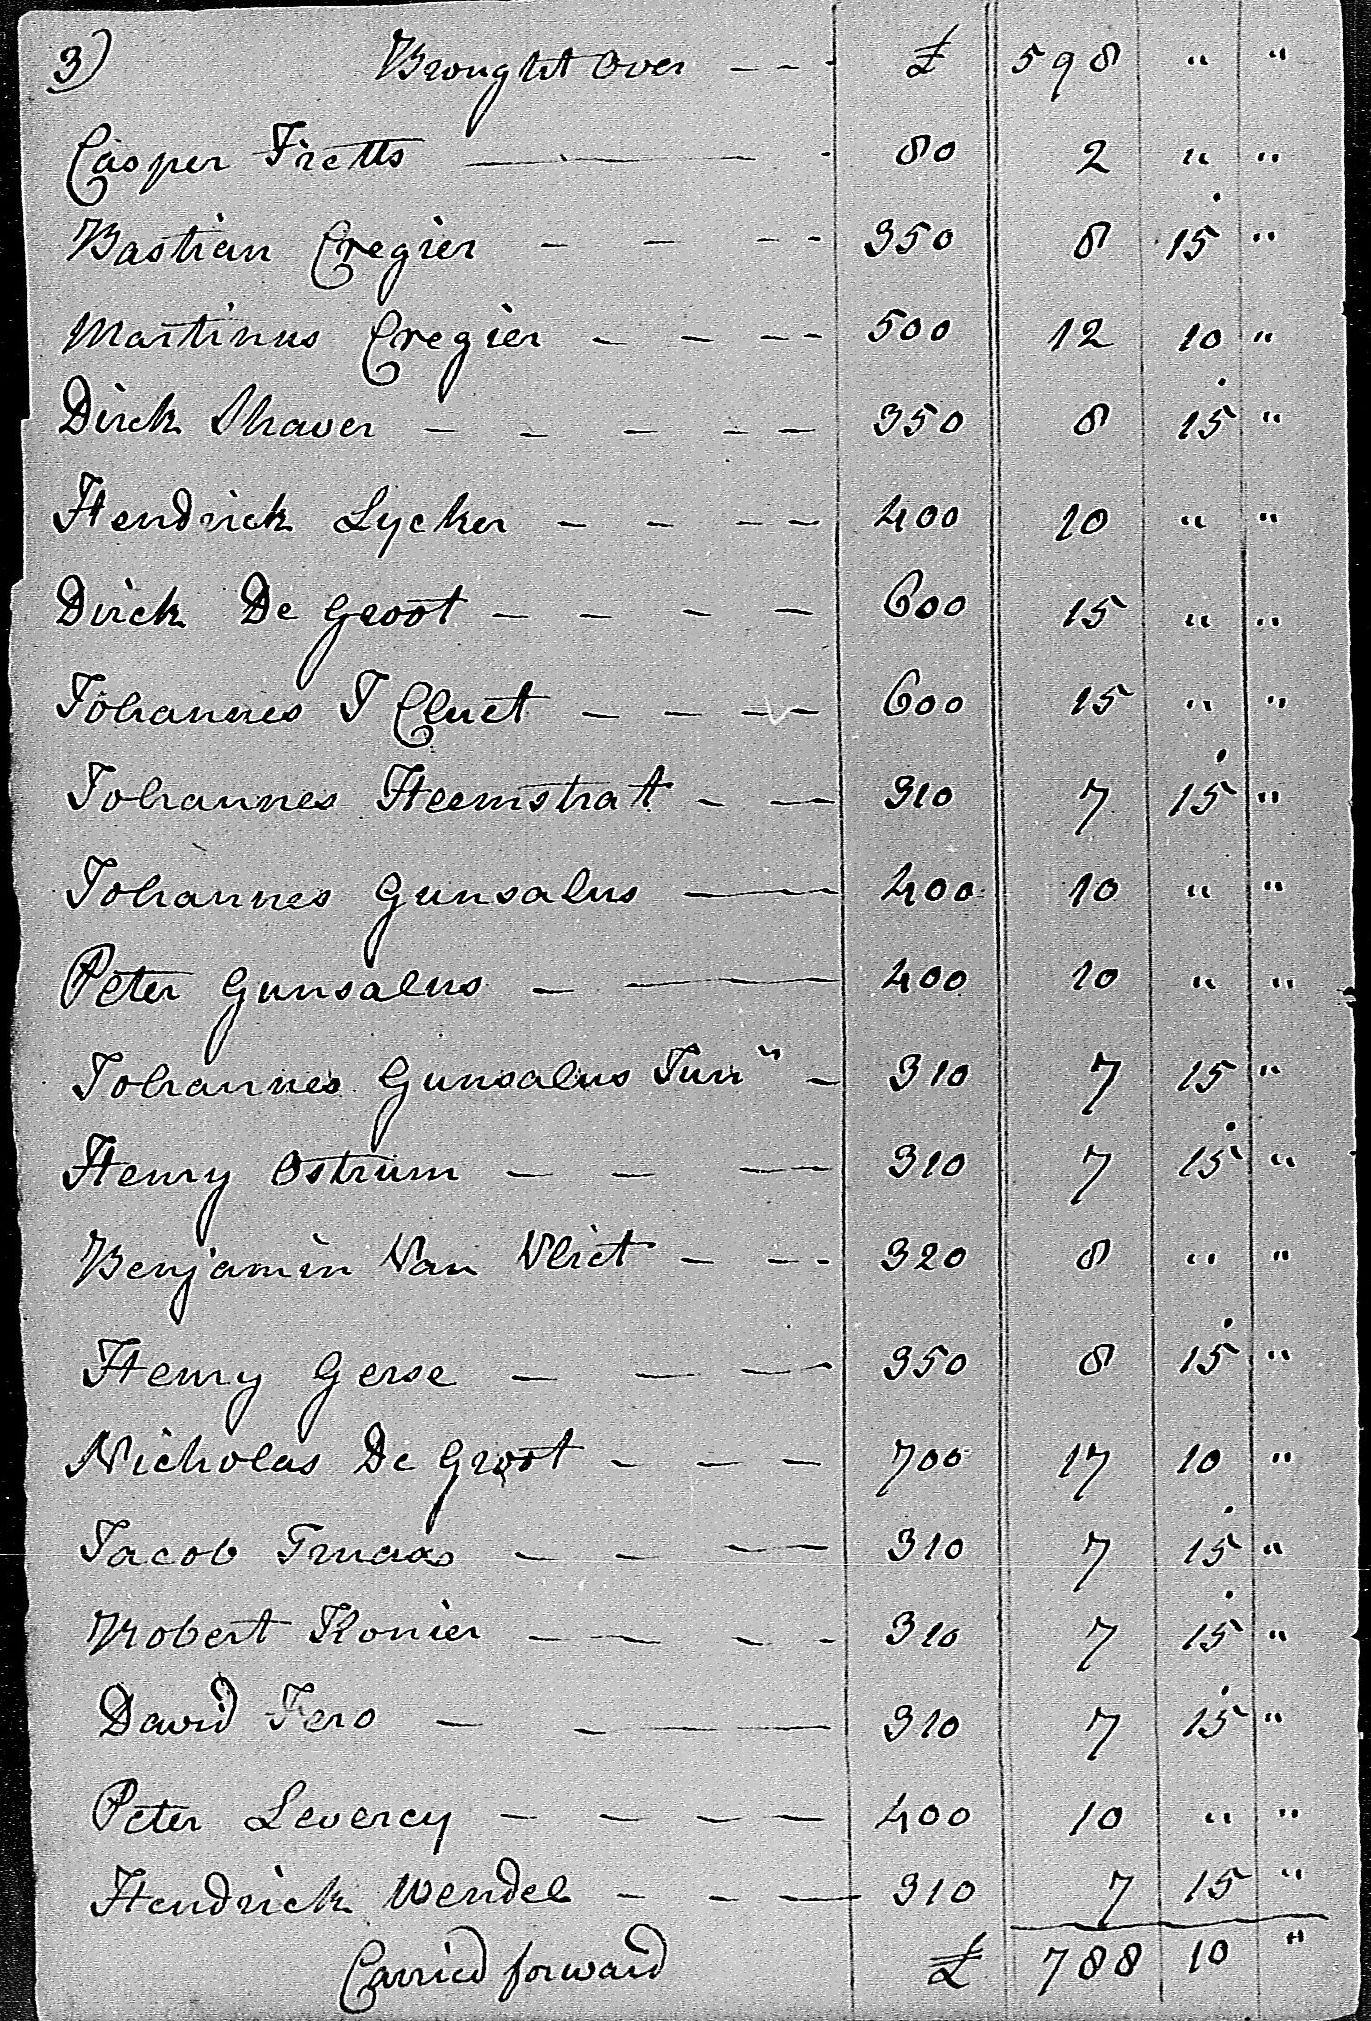 3) Brought over - - - £ 598 " "
Casper Fretts — 80 2 " "
Bastian Cregier - - - - 350 8 15 "
Martinus Cregier - - - - 500 12 10 "
Dirck Shaver - - - - - 350 8 15 "
Hendrick Lycker - - - - 400 10 " "
Dirck De Groot - - - - 600 15 " "
Johannes J Cluet - - - - 600 15 " "
Johannes Heemstrat - - - 310 7 15 "
Johannes Gunsalus — 400 10 " "
Peter Gunsalus - — 400 10 " "
Johannes Gunsalus Junr - 310 7 15 "
Henry Ostrum - - - - 310 7 15 "
Benjamin Van Vliet - - - 320 8 " "
Henry Gerse - - - - 350 8 15 "
Nicholas De Groot - - - 700 17 10 "
Jacob Truaas - - - - 310 7 15 "
Robert Konier - - - - 310 7 15 "
David Fero - - - - 310 7 15 "
Peter Levercy - - - - 400 10 " "
Hendrick Wendel - - - 310 7 15 "
Carried forward £ 788 10 "